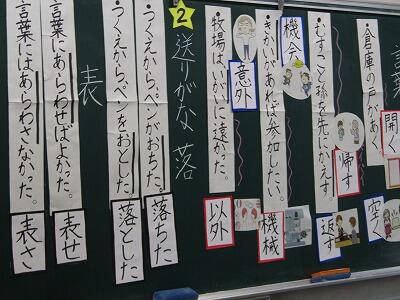 言葉
・倉庫の戸があく。
開く
空く
・むすこと孫を先にかえす。
帰す
返す
・きかいがあれば参加したい。
機会
機械
・牧場はいがいに遠かった。
意外
以外
2 送りがな 落
・つくえからペンがおちた。
落ちた
・つくえからペンをおとした。
落とした
表
言葉にあらわせばよかった。
表せ
言葉にはあらわさなかった。
表さ